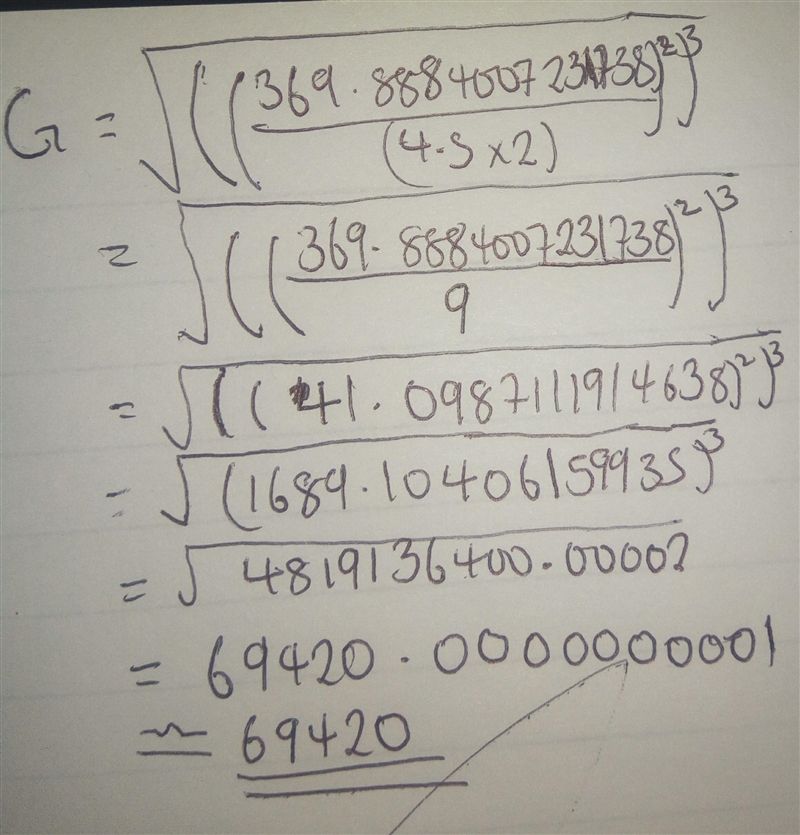 G = √(((369.8884007231738)/(4.5×2))²)³
= √(((369.8884007231738)/9)²)³
= √((41.0987111914638)²)³
= √(1689.10406159935)³
= √4819136400.00002
= 69420.0000000001
≈ 69420